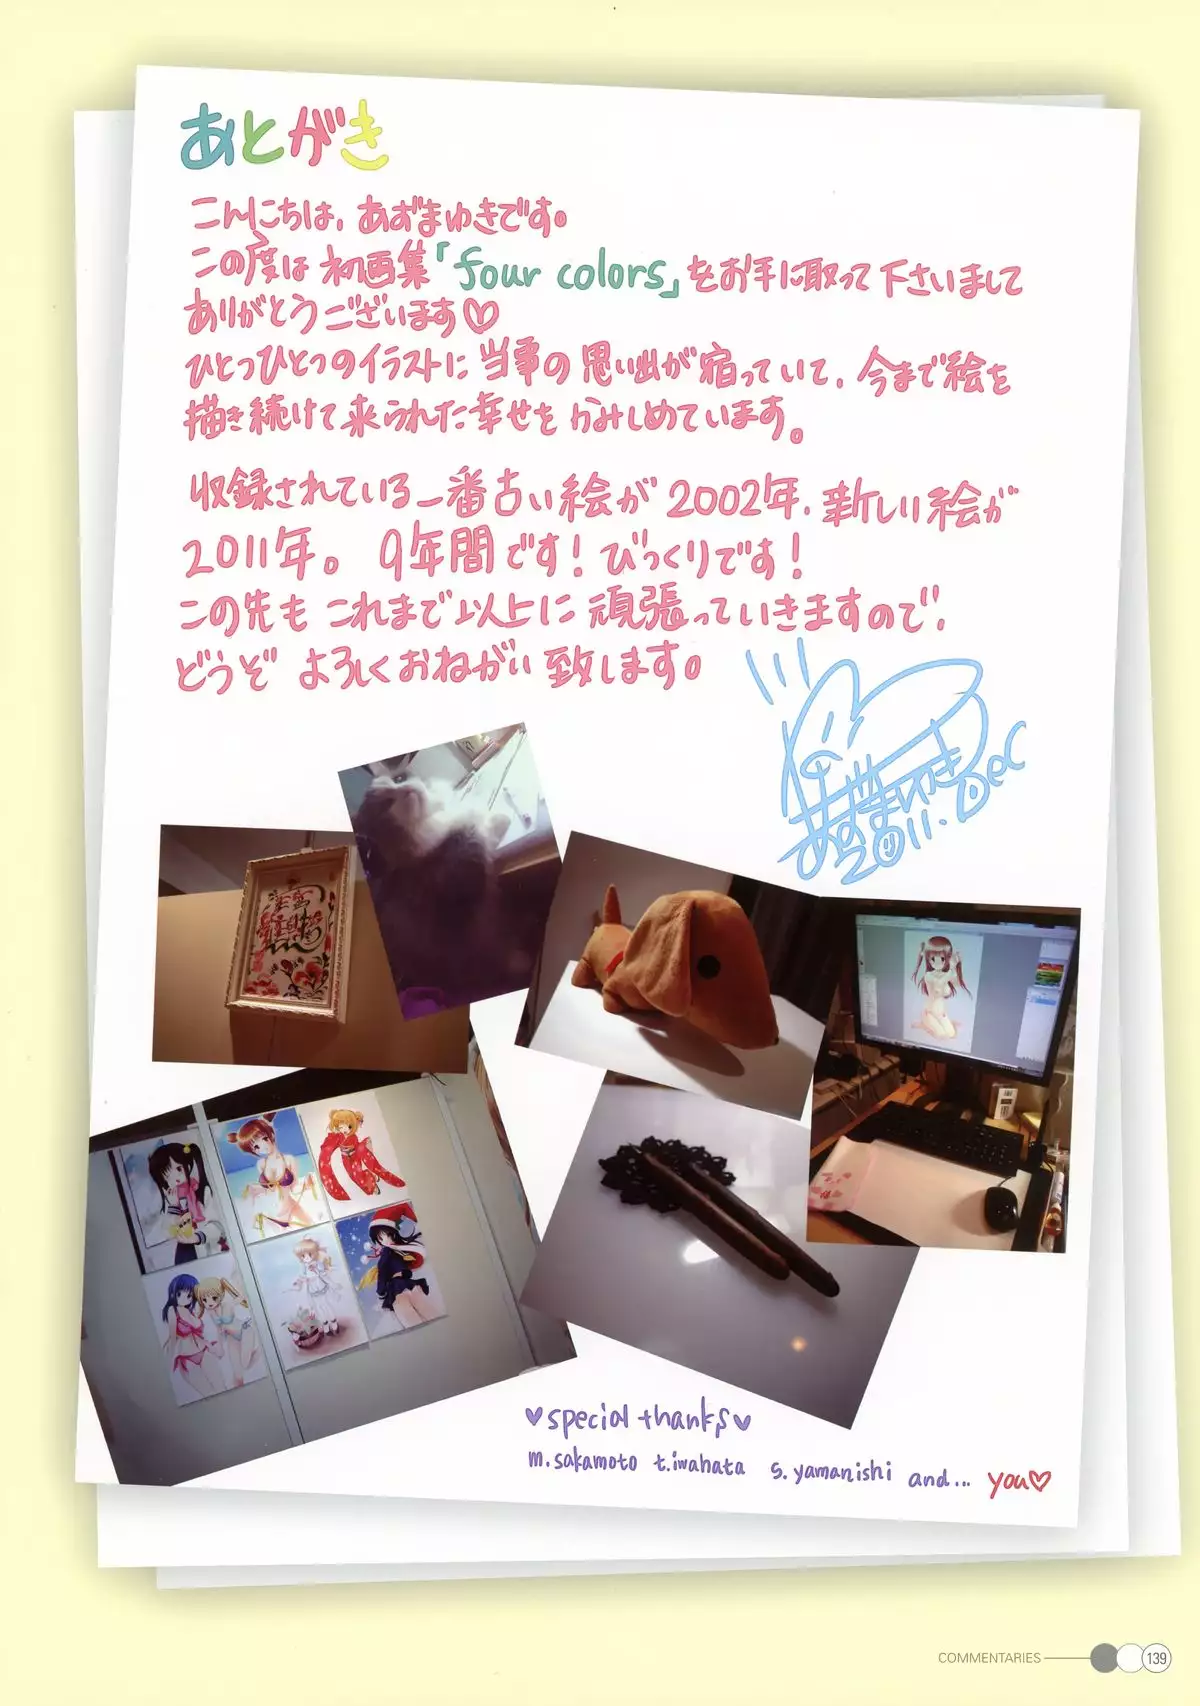 あとがき
こんにちは、あずまゆきです。
この度は初画集「four colors」をお手に取って下さいまして
ありがとうございます♡
ひとつひとつのイラストに当時の思い出が宿っていて、今まで絵を
描き続けて来られた幸せをかみしめています。
収録されている一番古い絵が2002年、新しい絵が
2011年。9年間です！びっくりです！
この先もこれまで以上に頑張っていきますので、
どうぞよろしくおねがい致します。
あずまゆき
2011.Dec
♥special thanks♥
m.sakamoto t.iwahata s.yamanishi and... you♡
COMMENTARIES 139